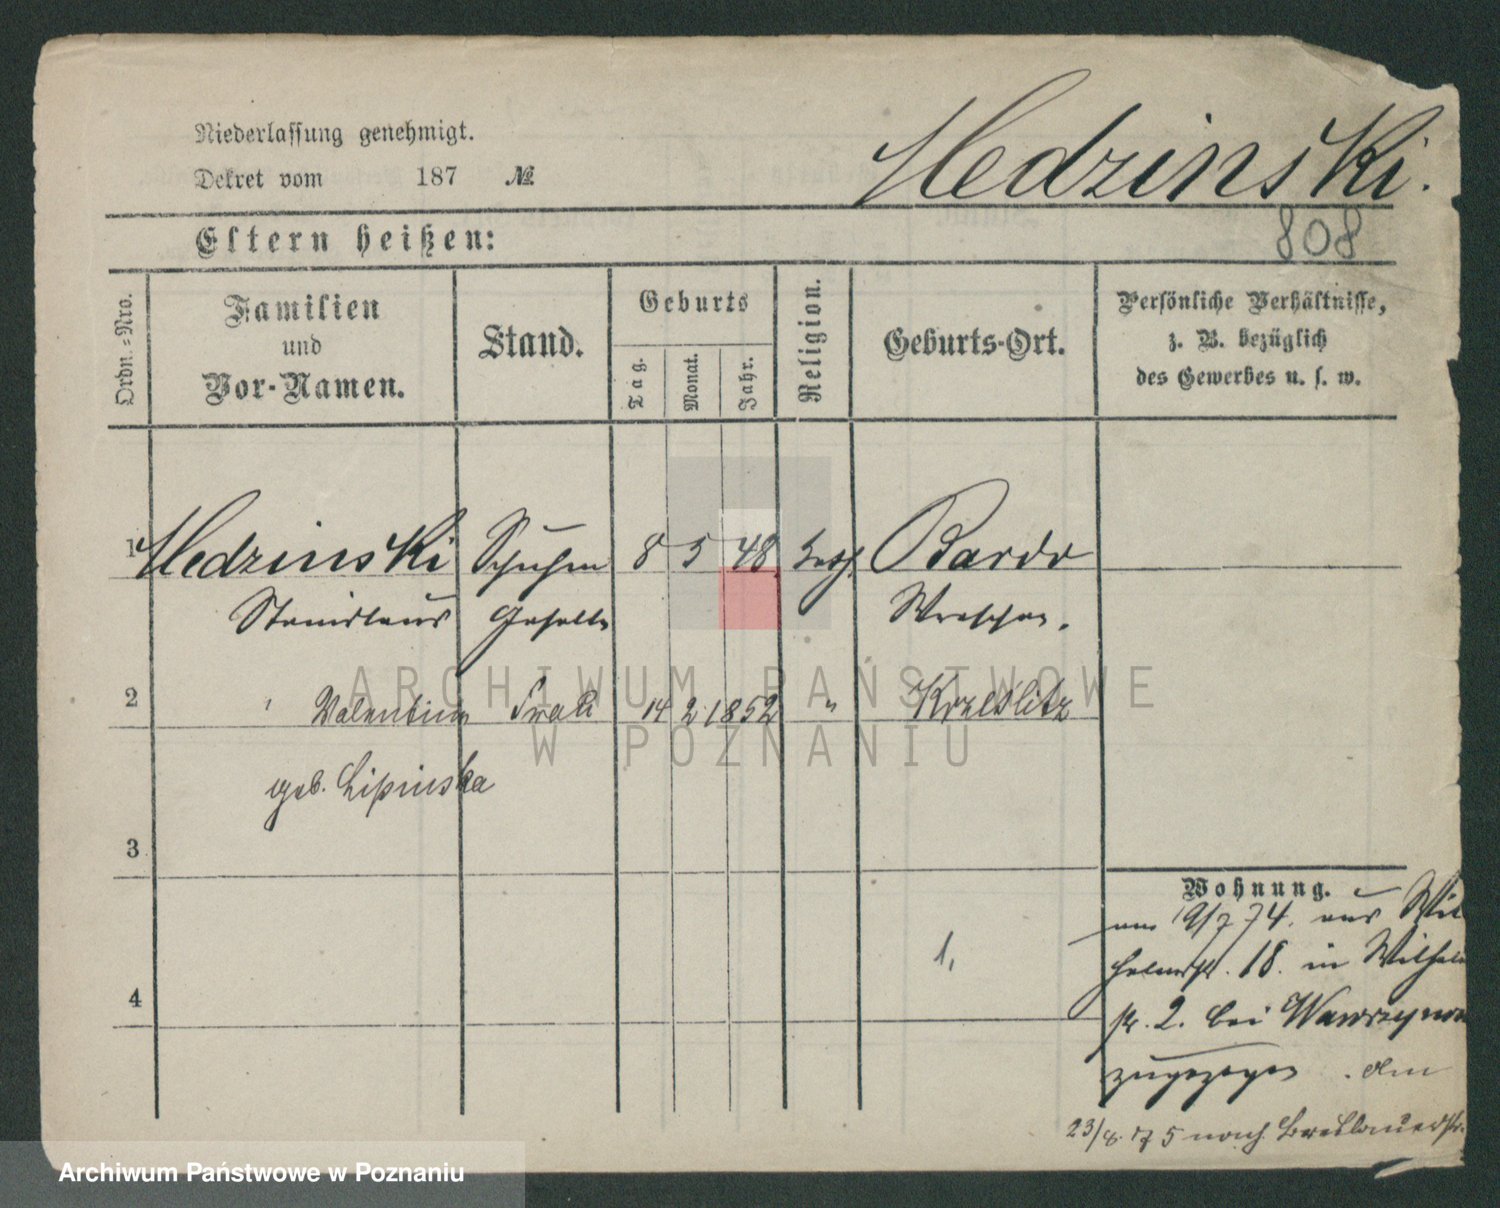 Niederlassung genehmigt.
Dekret vom 187 №
Hedzinski.
808
Eltern heißen:
Ordn.=Nro.
Familien
und
Vor-Namen.
Stand.
Geburts
Tag.
Monat.
Jahr.
Religion.
Geburts-Ort.
Persönliche Verhältnisse,
z. B. bezüglich
des Gewerbes u. s. w.
1 Hedzinski Schuhm 8 5 48. kath. Bardo
Stanislaus Geselle Wreschen.
2 " Valentina Frau 14 2 1852 "
geb. Lipinska
3
4
1,
Wohnung.
am 19/7 74. aus Wil
helmstr. 18. in Wilhelm
str. 2. bei
zugezogen. Am
23/8. 75 nach Breslauerstr.
ARCHIWUM PAŃSTWOWE
W POZNANIU
Archiwum Państwowe w Poznaniu